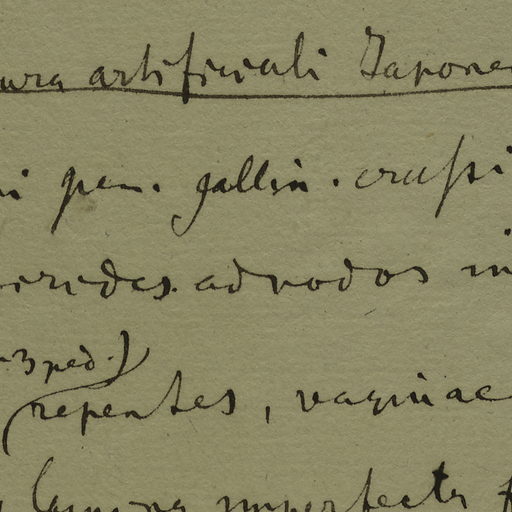 ura artificiali Japone
i pen. gallin. crassi
virides. ad nodos in
-3 ped.)
repentes, vaginae
imperfecta f